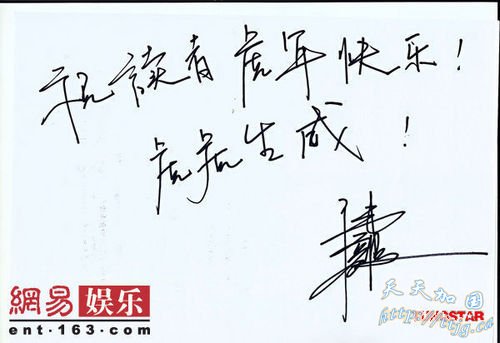 祝读者虎年快乐!
虎虎生威!
網易 娱乐
ent·163.com
天天加国
http://ttjg.ca
STAR